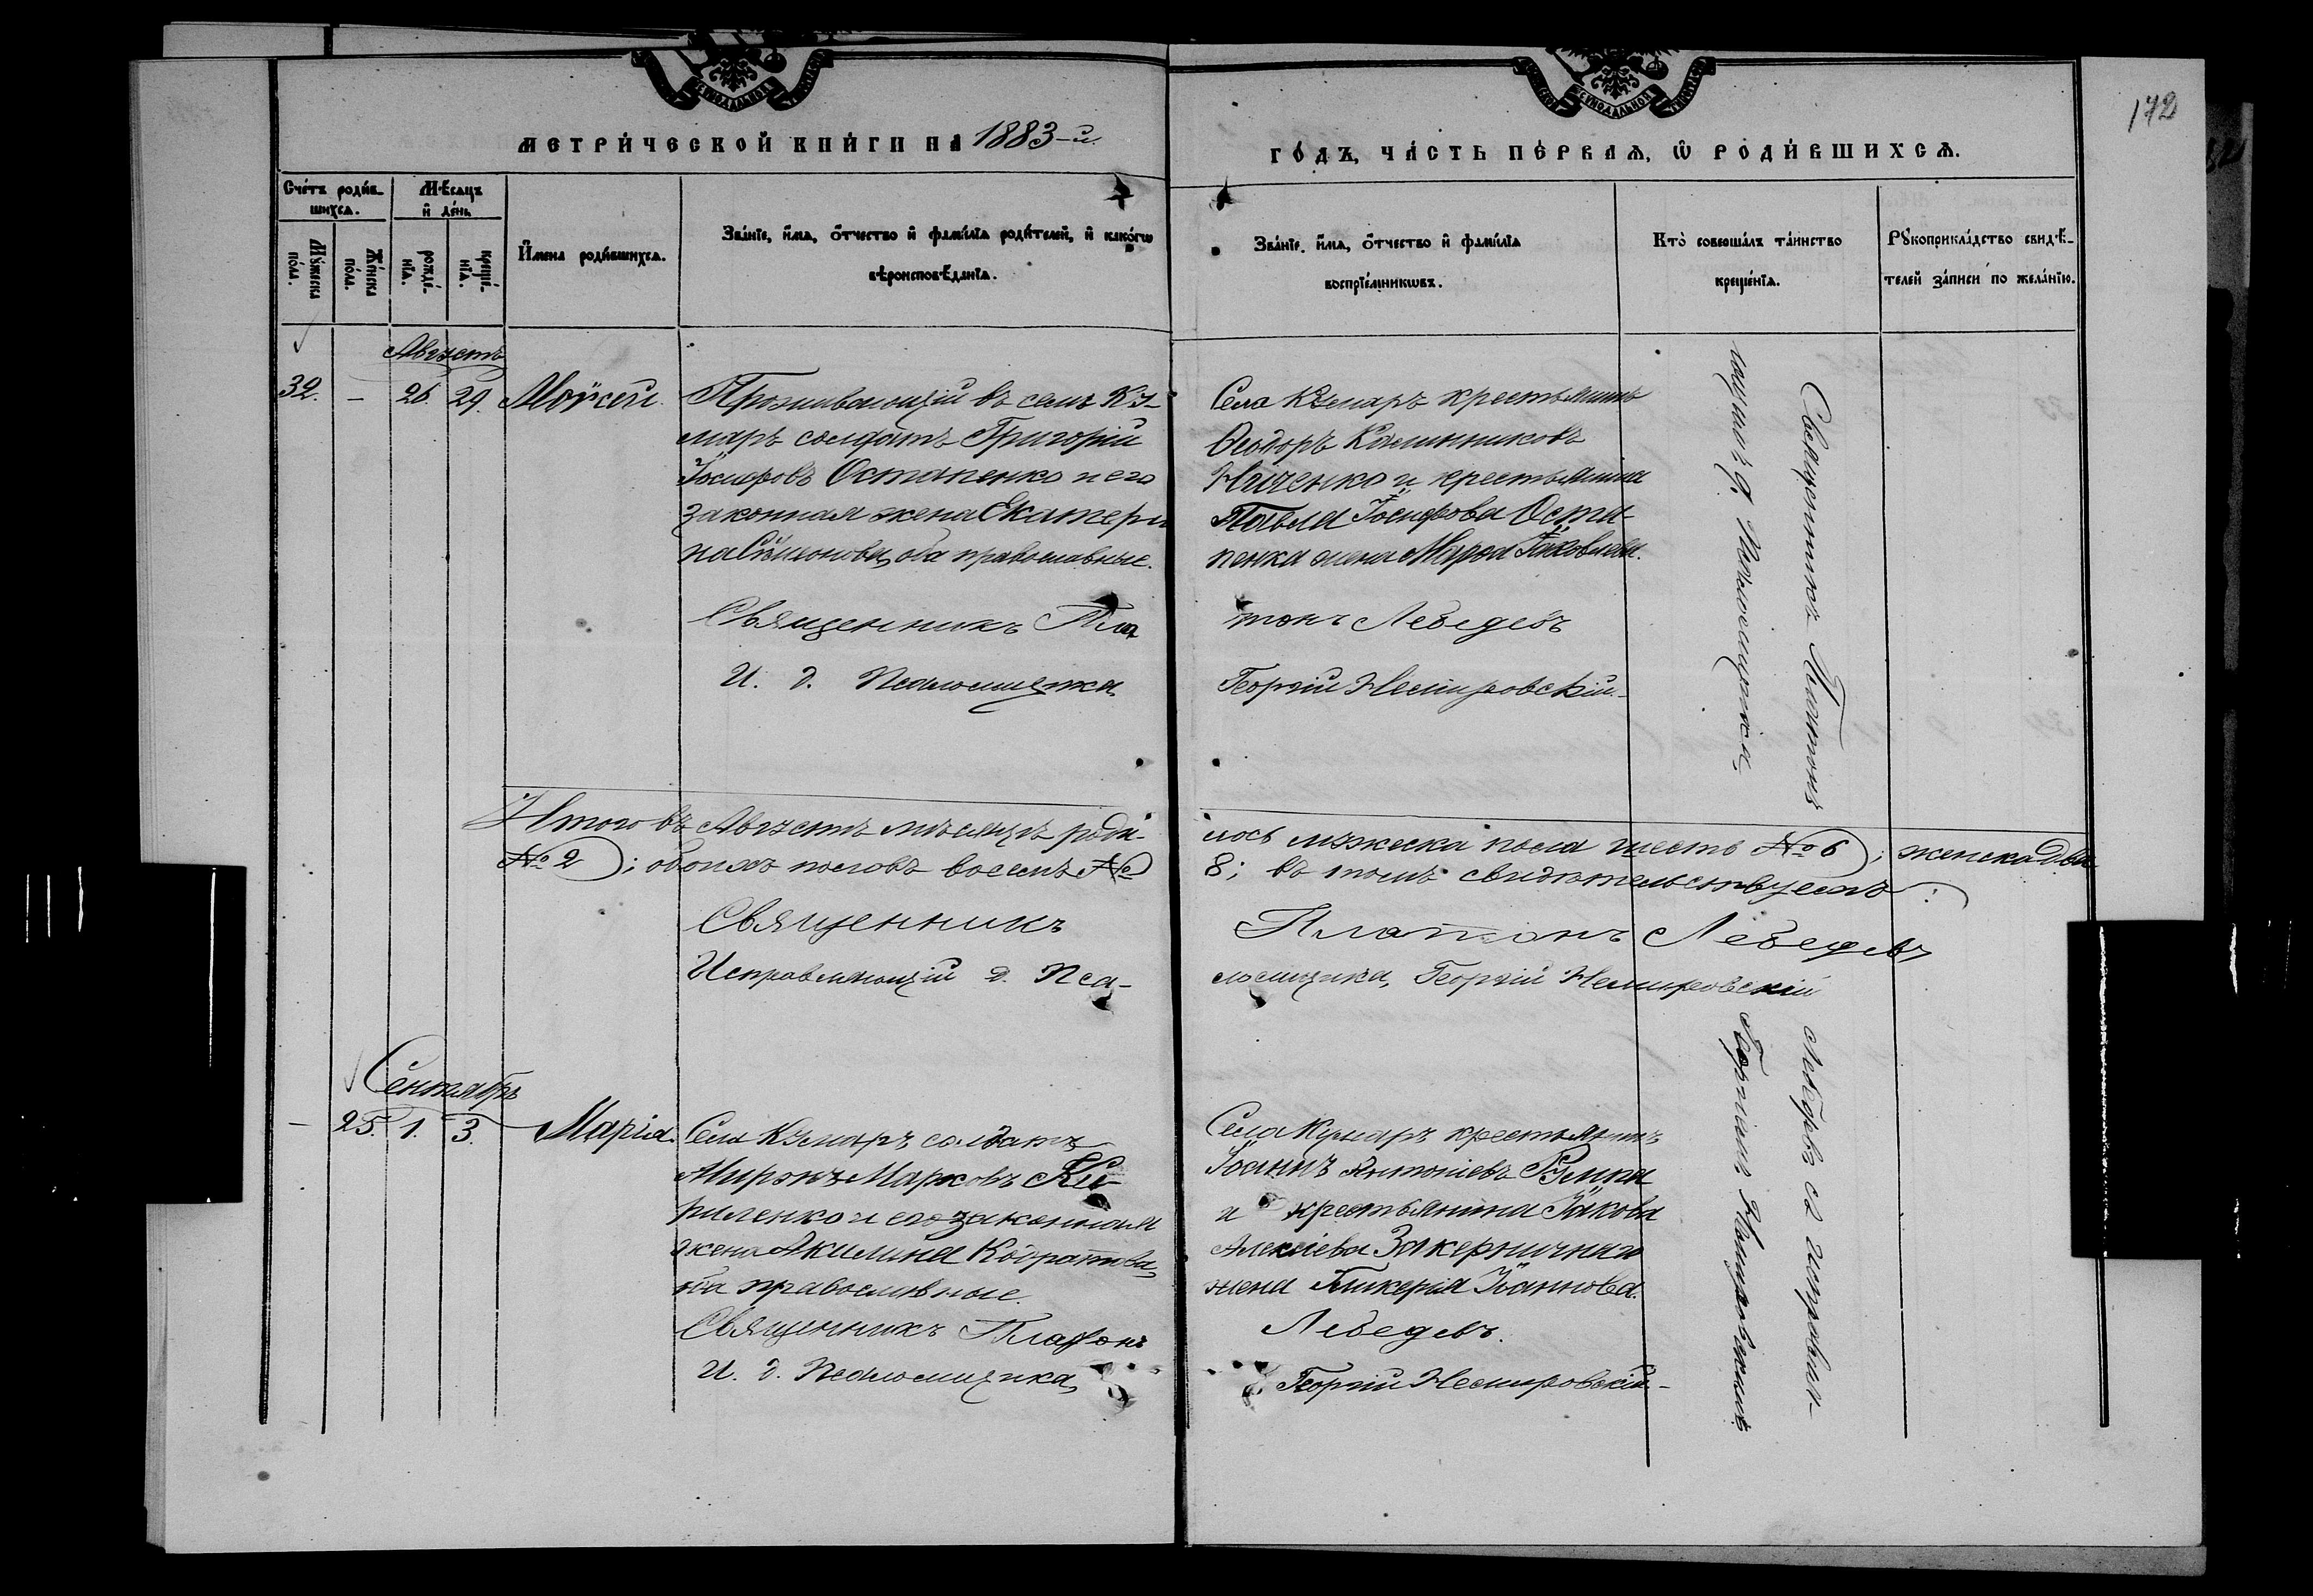 172
МЕТРИ́ЧЕСКОЙ КНИ́ГИ НА 1883-й
ГО́ДЪ, ЧА́СТЬ ПЕ́РВАѦ, Ѡ РОДИ́ВШИХСѦ.
Сче́тъ роди́в-
шихсѧ.
Мѣ́сѧцъ
и де́нь
Му́жеска по́ла.
Же́нска по́ла.
рожде́-
нїѧ.
креще́-
нїѧ.
И́мена роди́вшихсѧ.
Зва́нїе, и́мѧ, о́тчество и фамі́лїѧ роди́телей, и како́гѡ
вѣроисповѣ́данїѧ.
Зва́нїе, и́мѧ, о́тчество и фамі́лїѧ
воспрїе́мникѡвъ.
Кто̀ соверша́лъ та́инство
креще́нїѧ.
Рꙋкоприкла́дство свидѣ́-
телей за́писи по жела́нїю.
Августъ
32. — 26. 29. Моѵсей.
Проживающій въ селѣ Ку-
маръ солдатъ Григорій
Іосифовъ Остапенко и его
законная жена Екатери
на Симеонова, оба православные.
Священникъ Пла
И. д. Псаломщика
Села Кумаръ крестьянинъ
Ѳеодоръ Калинниковъ
Ниченко и крестьянина
Павла Іосифова Оста-
пенка жена Марѳа Іаковлева.
тонъ Лебедевъ
Георгій Немировскій.
Священникъ Платонъ
Псаломщика
Итого въ Августѣ мѣсяцѣ роди-
лось мужеска пола шесть № 6; женска два
№ 2; обоихъ половъ восемь №
8; въ томъ свидѣтельствуемъ:
Священникъ
Платонъ Лебедевъ
Исправляющій д. Пса-
ломщика, Георгій Немировскій
Сентябрь
— 25. 1. 3. Марія.
Села Кумаръ солдатъ
Миронъ Марковъ Ки-
риленко и его законная
жена Акилина Кодратова,
оба православные.
Священникъ Платонъ
И. д. Псаломщика,
Села Кумаръ крестьянинъ
Іоаннъ Антоніевъ
и крестьянина Іакова
Алексіева Закерничнаго
жена Гликерія Іоаннова.
Лебедевъ.
Георгій Немировскій-
Лебедевъ съ исправля-
Георгіемъ Немировскимъ